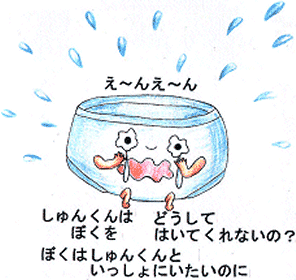 え〜んえ〜ん
しゅんくんは どうして
ぼくを はいてくれないの？
ぼくはしゅんくんと
いっしょにいたいのに